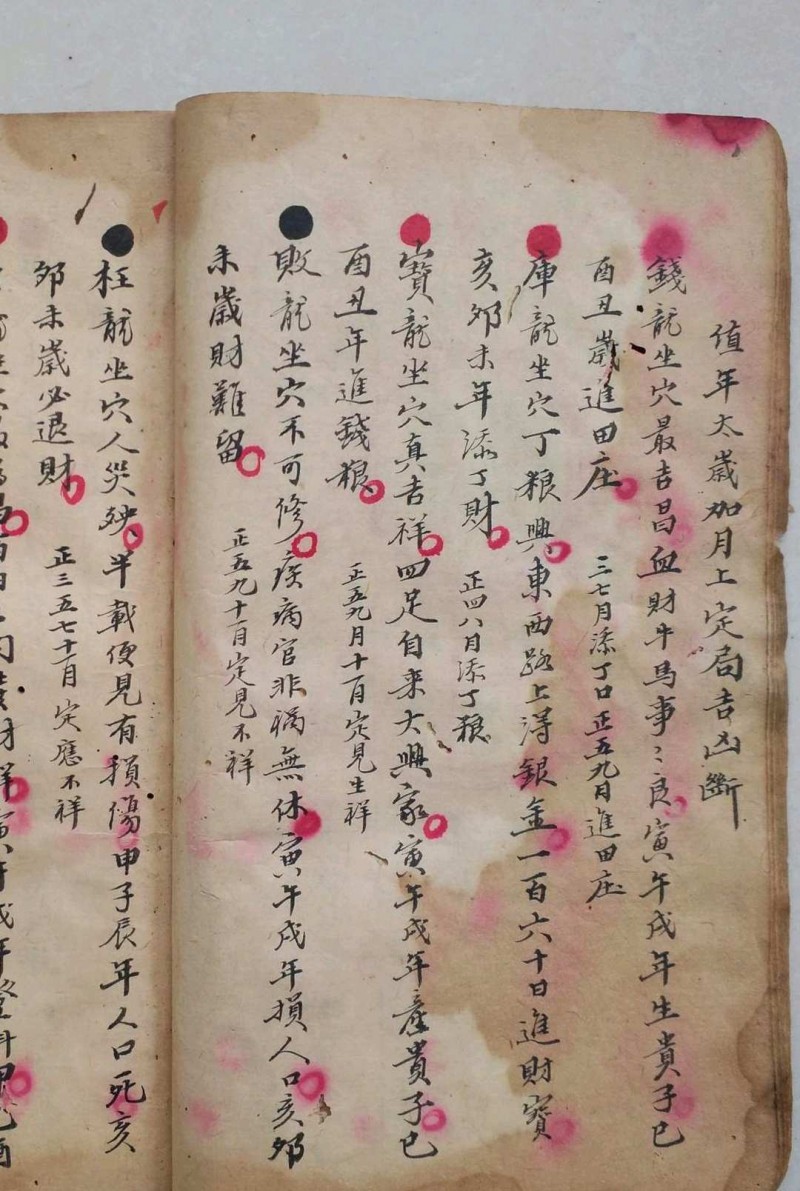 值年太歲加月上定局吉凶斷
錢龍坐穴最吉昌血財牛馬事〻良寅午戌年生貴子巳
酉丑歲進田庄 三七月添丁口正五九月進田庄
庫龍坐穴丁粮興東西路上淂銀金一百六十日進財寶
亥夘未年添丁財 正四八月添丁粮
寶龍坐穴真吉祥四足自来大興家寅午戌年産貴子巳
酉丑年進錢粮 正五九月十一月定見生祥
敗龍坐穴不可修疾病官非禍無休寅午戌年損人口亥夘
未歲財難留 正五九十一月定見不祥
枉龍坐穴人災殃半載便見有損傷申子辰年人口死亥
夘未歲必退財 正三五七十一月定應不祥